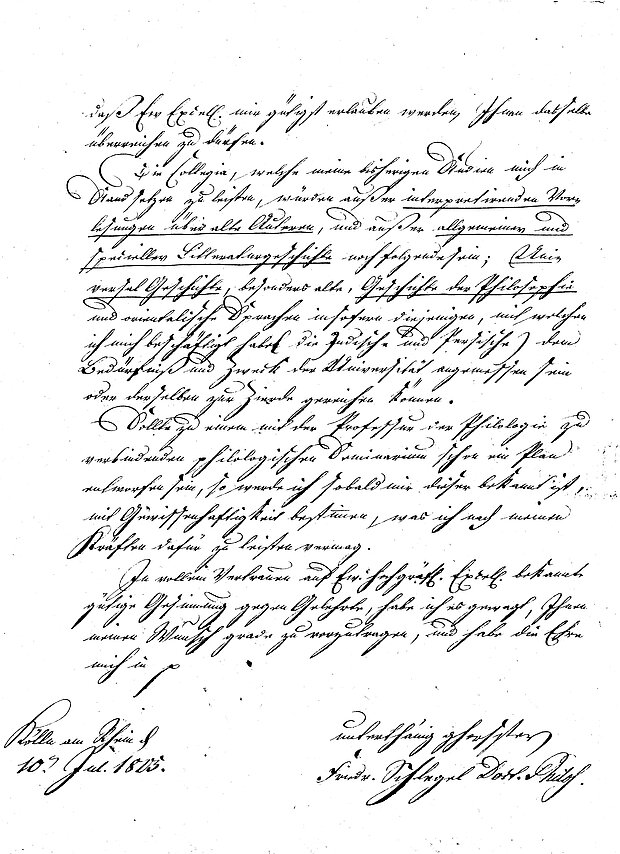 daß Ew Excell. mir gütigst erlauben werden, Ihnen dasselbe
überreichen zu dürfen.
Die Collegia, welche meine bisherigen Studien mich in
Stand setzen zu leisten, würden außer interpretirenden Vor-
lesungen über alte Autoren, und außer allgemeiner und
specieller Litteraturgeschichte noch folgende sein; Uni-
versal Geschichte, besonders alte, Geschichte der Philosophie
und orientalische Sprachen insofern diejenigen, mit welchen
ich mich beschäftigt habe (die Indische und Persische) dem
Bedürfniß und Zweck der Universität angemessen sein
oder derselben zur Zierde gereichen können.
Sollte zu einem mit der Professur der Philologie zu
verbindenden philologischen Seminarium schon ein Plan
entworfen sein, so werde ich sobald mir dieser bekannt ist,
mit Gewissenhaftigkeit bestimmen, was ich nach meinen
Kräften dafür zu leisten vermag.
In vollem Vertrauen auf Ew. Hochgräfl. Excell. bekannte
gütige Gesinnung gegen Gelehrte, habe ich es gewagt, Ihnen
meinen Wunsch grade zu vorzutragen, und habe die Ehre
mich in
Kölln am Rhein d
10 Jul. 1805.
unterthänig gehorsamster
Friedr. Schlegel Doct. Philos.